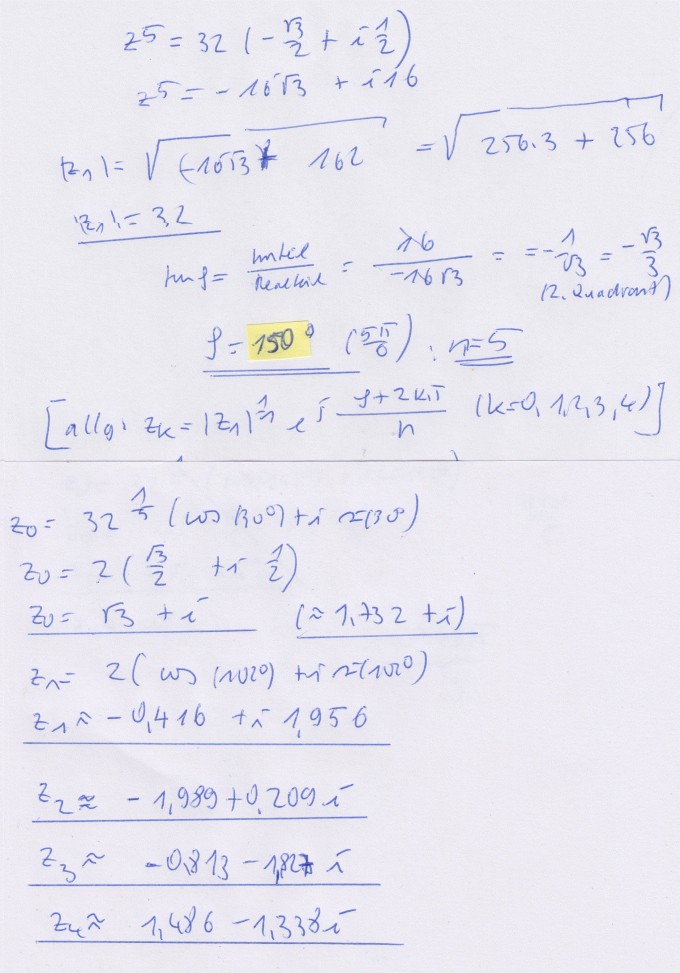 z⁵ = 32 (-√3/2 + i 1/2)
z⁵ = -16√3 + i 16
|z₁| = √((-16√3)² 16²) = √(256·3 + 256)
|z₁| = 32
tan φ = Imteil/Realteil = 16/(-16√3) = = -1/√3 = -√3/3
(2. Quadrant)
φ = 150° (5π/6) : n=5
[allg: z_k = |z₁|^(1/n) e^(i (φ+2kπ)/n) (k=0,1,2,3,4)]
z₀ = 32^(1/5) (cos(30°)+i sin(30°)
z₀ = 2 (√3/2 + i 1/2)
z₀ = √3 + i (≈ 1,732 + i)
z₁ = 2( cos (102°) + i sin(102°)
z₁ ≈ -0,416 + i 1,956
z₂ ≈ -1,989+0,209 i
z₃ ≈ -0,813 -1,827 i
z₄ ≈ 1,486 -1,338 i